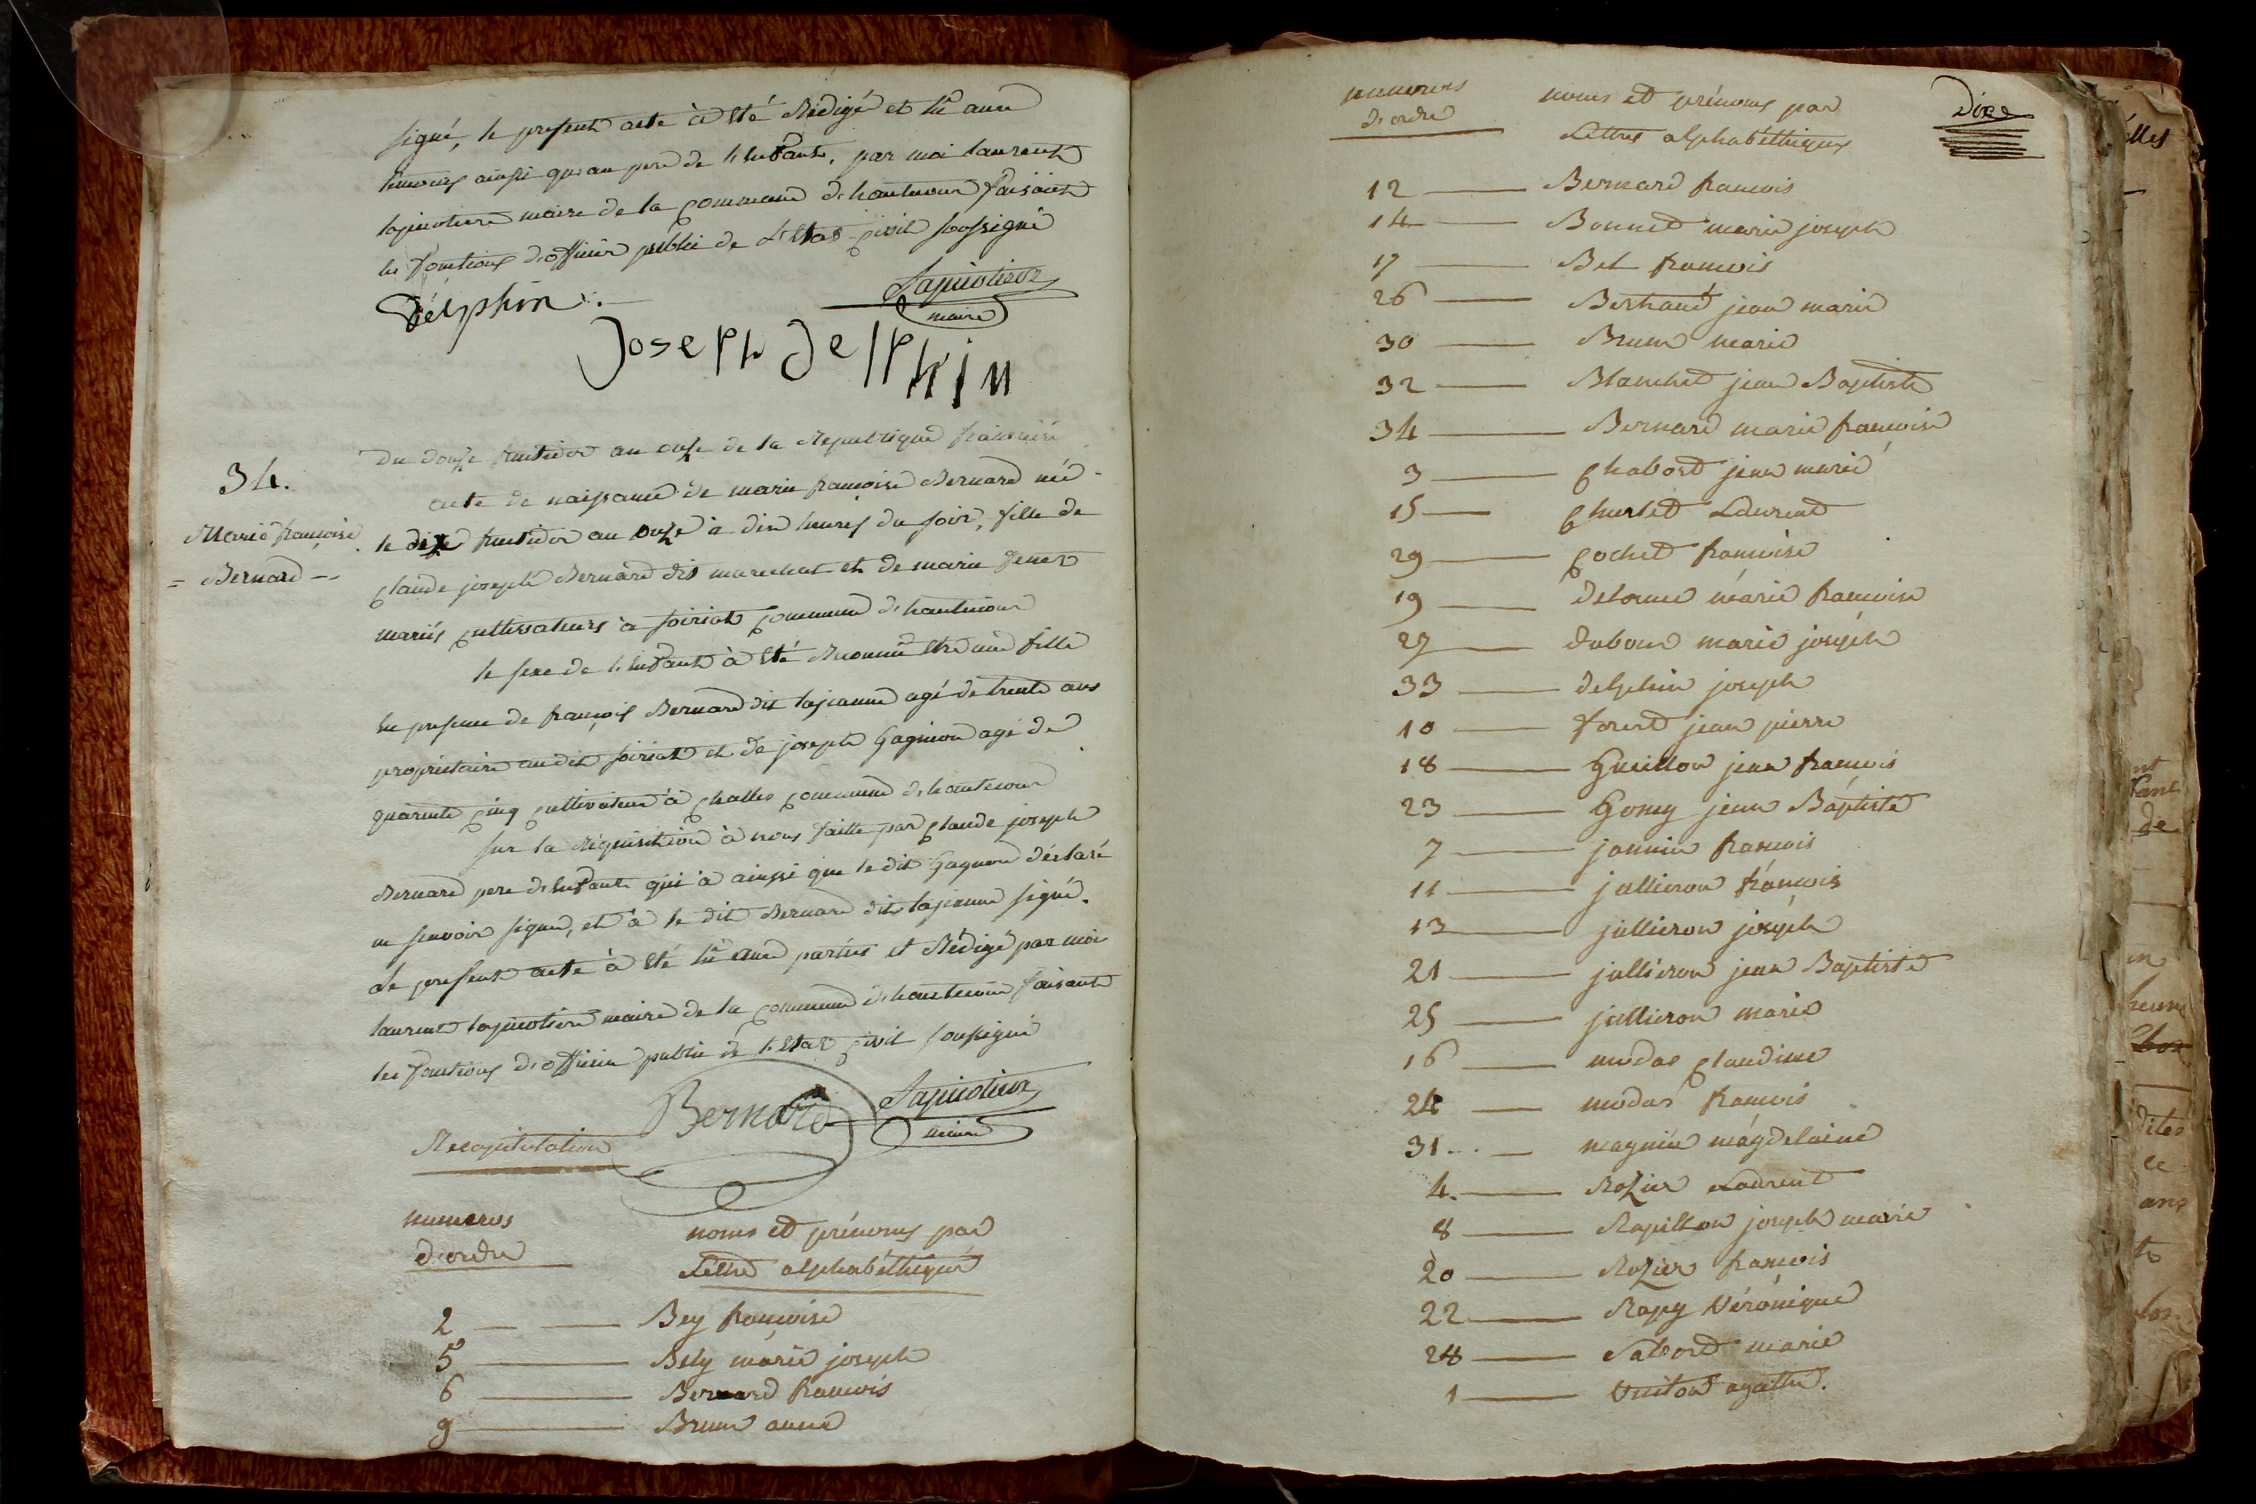 signé, le present acte à été Rédigé et lû aux
temoins ainsi qu'au pere de l'enfant, par moi laurent
lapierre maire de la Commune d'hautecour faisant
les fonctions d'officier public de l'Etat Civil soussigné
Délphin
maire
Joseph delphin
Du douze fructidor an onze de la Republique française
34.
acte de naissance de marie françoise Bernard née
Marie françoise
le dixe fructidor an onze à dix heures du soir, fille de
= Bernard --
Claude joseph Bernard dis marechat et de marie
mariés Cultivateurs à soiriat Commune d'hautecour
le sexe de l'enfant à été Reconnu être une fille
En presence de françois Bernard dit lajeanne agé de trente ans
proprietaire audit soiriat et de joseph Gagnion agé de
quarente Cinq Cultivateur à Challes Commune d'hautecour
sur la Réquisition à nous faitte par Claude joseph
Bernard pere de l'enfant qui à ainssi que le dit Gagnion déclaré
ne scavoir signer, et à le dit Bernard dit lajeanne signé.
Le present acte à été lû aux parties et Rédigé par moi
laurent maire de la Commune d'hautecour faisant
les fonctions d'officier public de l'Etat Civil soussigné
Bernard
maire
Recapitulation
numeros
d'ordre
noms et prénoms par
Lettre alphabéthique
2 — — Bey françoise
5 — Bely marie joseph
6 — Bernard francois
9 — Brun anne
numeros
d'ordre
noms et prénoms par
Lettres alphabéthiques
Dixe
12 — Bernard francois
14 — Bonnet marie joseph
17 — Bel francois
26 — Bertrand jean marie
30 — Brun marie
32 — Blanchet jean Baptiste
34 — Bernard marie francoise
3 — Chabord jean marie
15 — Churlet Laurent
29 — Cochet francoise
19 — delorme marie francoise
27 — dubour marie joseph
33 — delphin joseph
10 — foret jean pierre
18 — Guillon jean francois
23 — Goncy jean Baptiste
7 — jannin francois
11 — jullieron francois
13 — jullieron joseph
21 — jullieron jean Baptiste
25 — jullieron marie
16 — modas Claudine
24 — modas francois
31 - — magnin magdelaine
4. — Rozier Laurent
8 — Rapillon joseph marie
20 — Rozier francois
22 — Rapy Véronique
28 — Sabord marie
1 — Vuiton agathe.